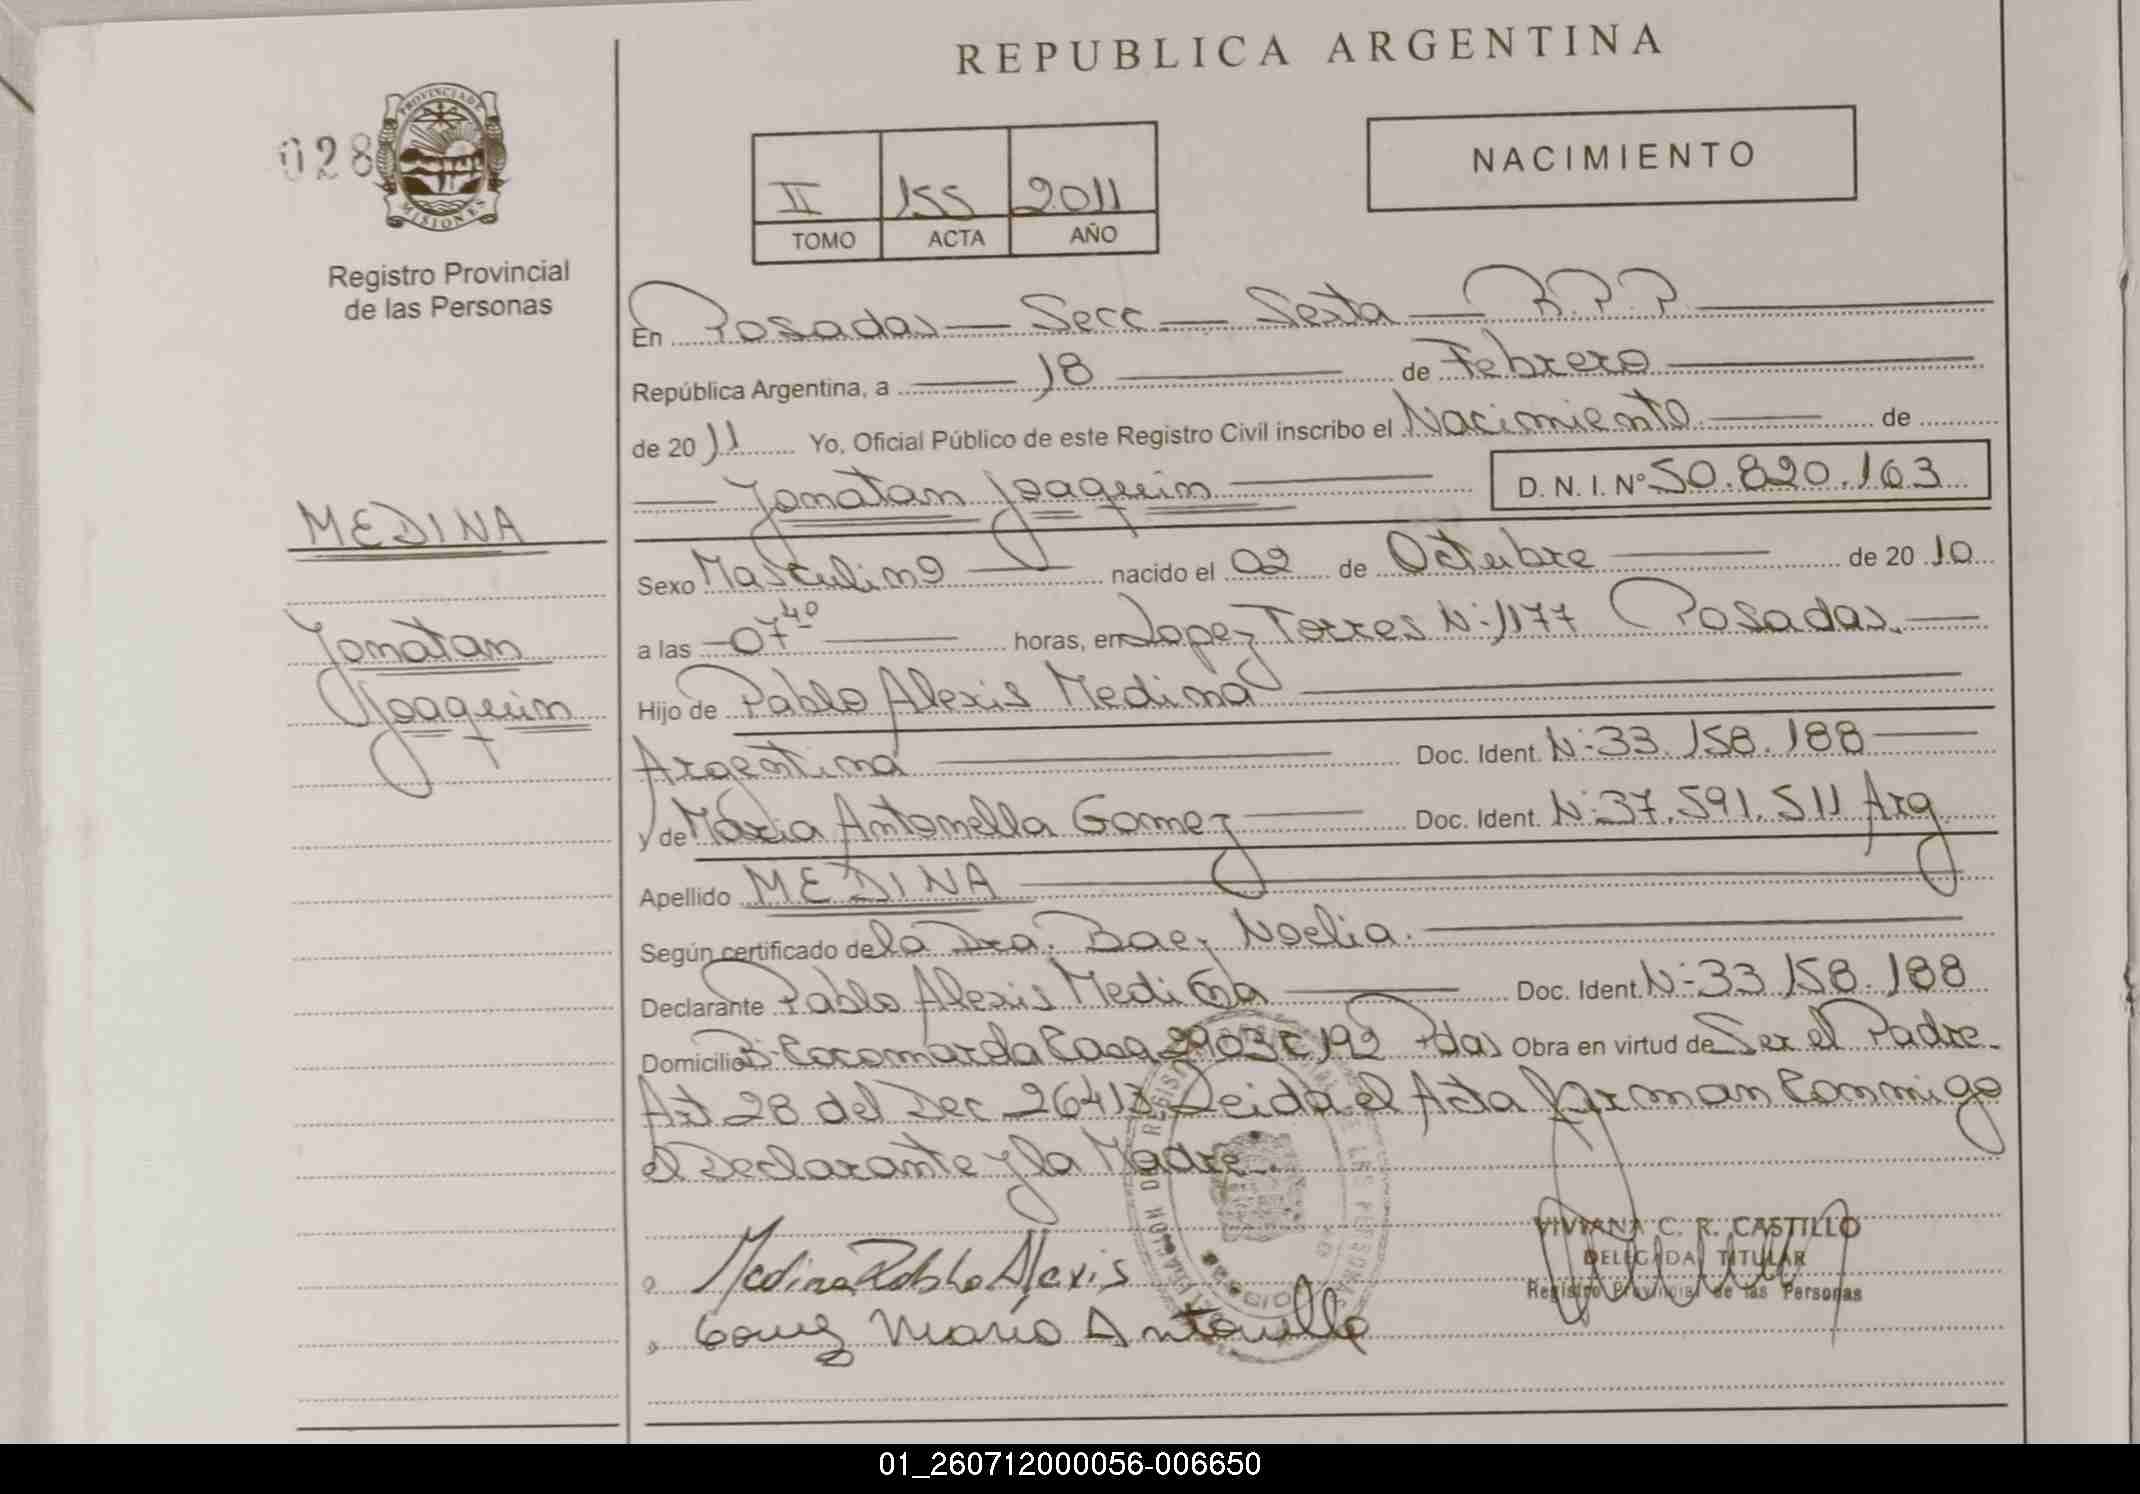 REPUBLICA ARGENTINA
028
PROVINCIA DE
MISIONES
Registro Provincial
de las Personas
II 155 2011
TOMO ACTA AÑO
NACIMIENTO
En Posadas — Secc — Sexta — R.P.P.
República Argentina, a 18 de Febrero
de 2011 Yo, Oficial Público de este Registro Civil inscribo el Nacimiento de
Jonatan Joaquin D. N. I. Nº 50.820.163
MEDINA
Jonatan
Joaquin
Sexo Masculino nacido el 02 de Octubre de 2010
a las 07 40 horas, en Lopez Torres Nº 1177 Posadas.
Hijo de Pablo Alexis Medina
Argentina Doc. Ident. Nº 33.158.188
y de Maria Antonella Gomez Doc. Ident. Nº 37.591.511 Arg
Apellido MEDINA
Según certificado de la Dra. Baez Noelia.
Declarante Pablo Alexis Medina Doc. Ident. Nº 33 158.188
Domicilio Bº Cocomarola Casa 2903 C 192 Pdas Obra en virtud de Ser el Padre.
Art 28 del Dec 26413 Leida el Acta firman Conmigo
el Declarante y la Madre.
Medina Pablo Alexis
Gomez Maria Antonella
VIVIANA C. R. CASTILLO
DELEGADA TITULAR
Registro Provincial de las Personas
01_260712000056-006650